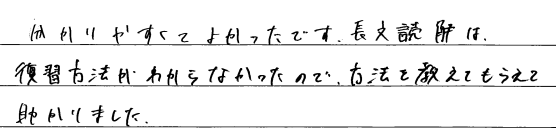 分かりやすくてよかったです。長文読解は、
復習方法がわからなかったので、方法を教えてもらえて
助かりました。